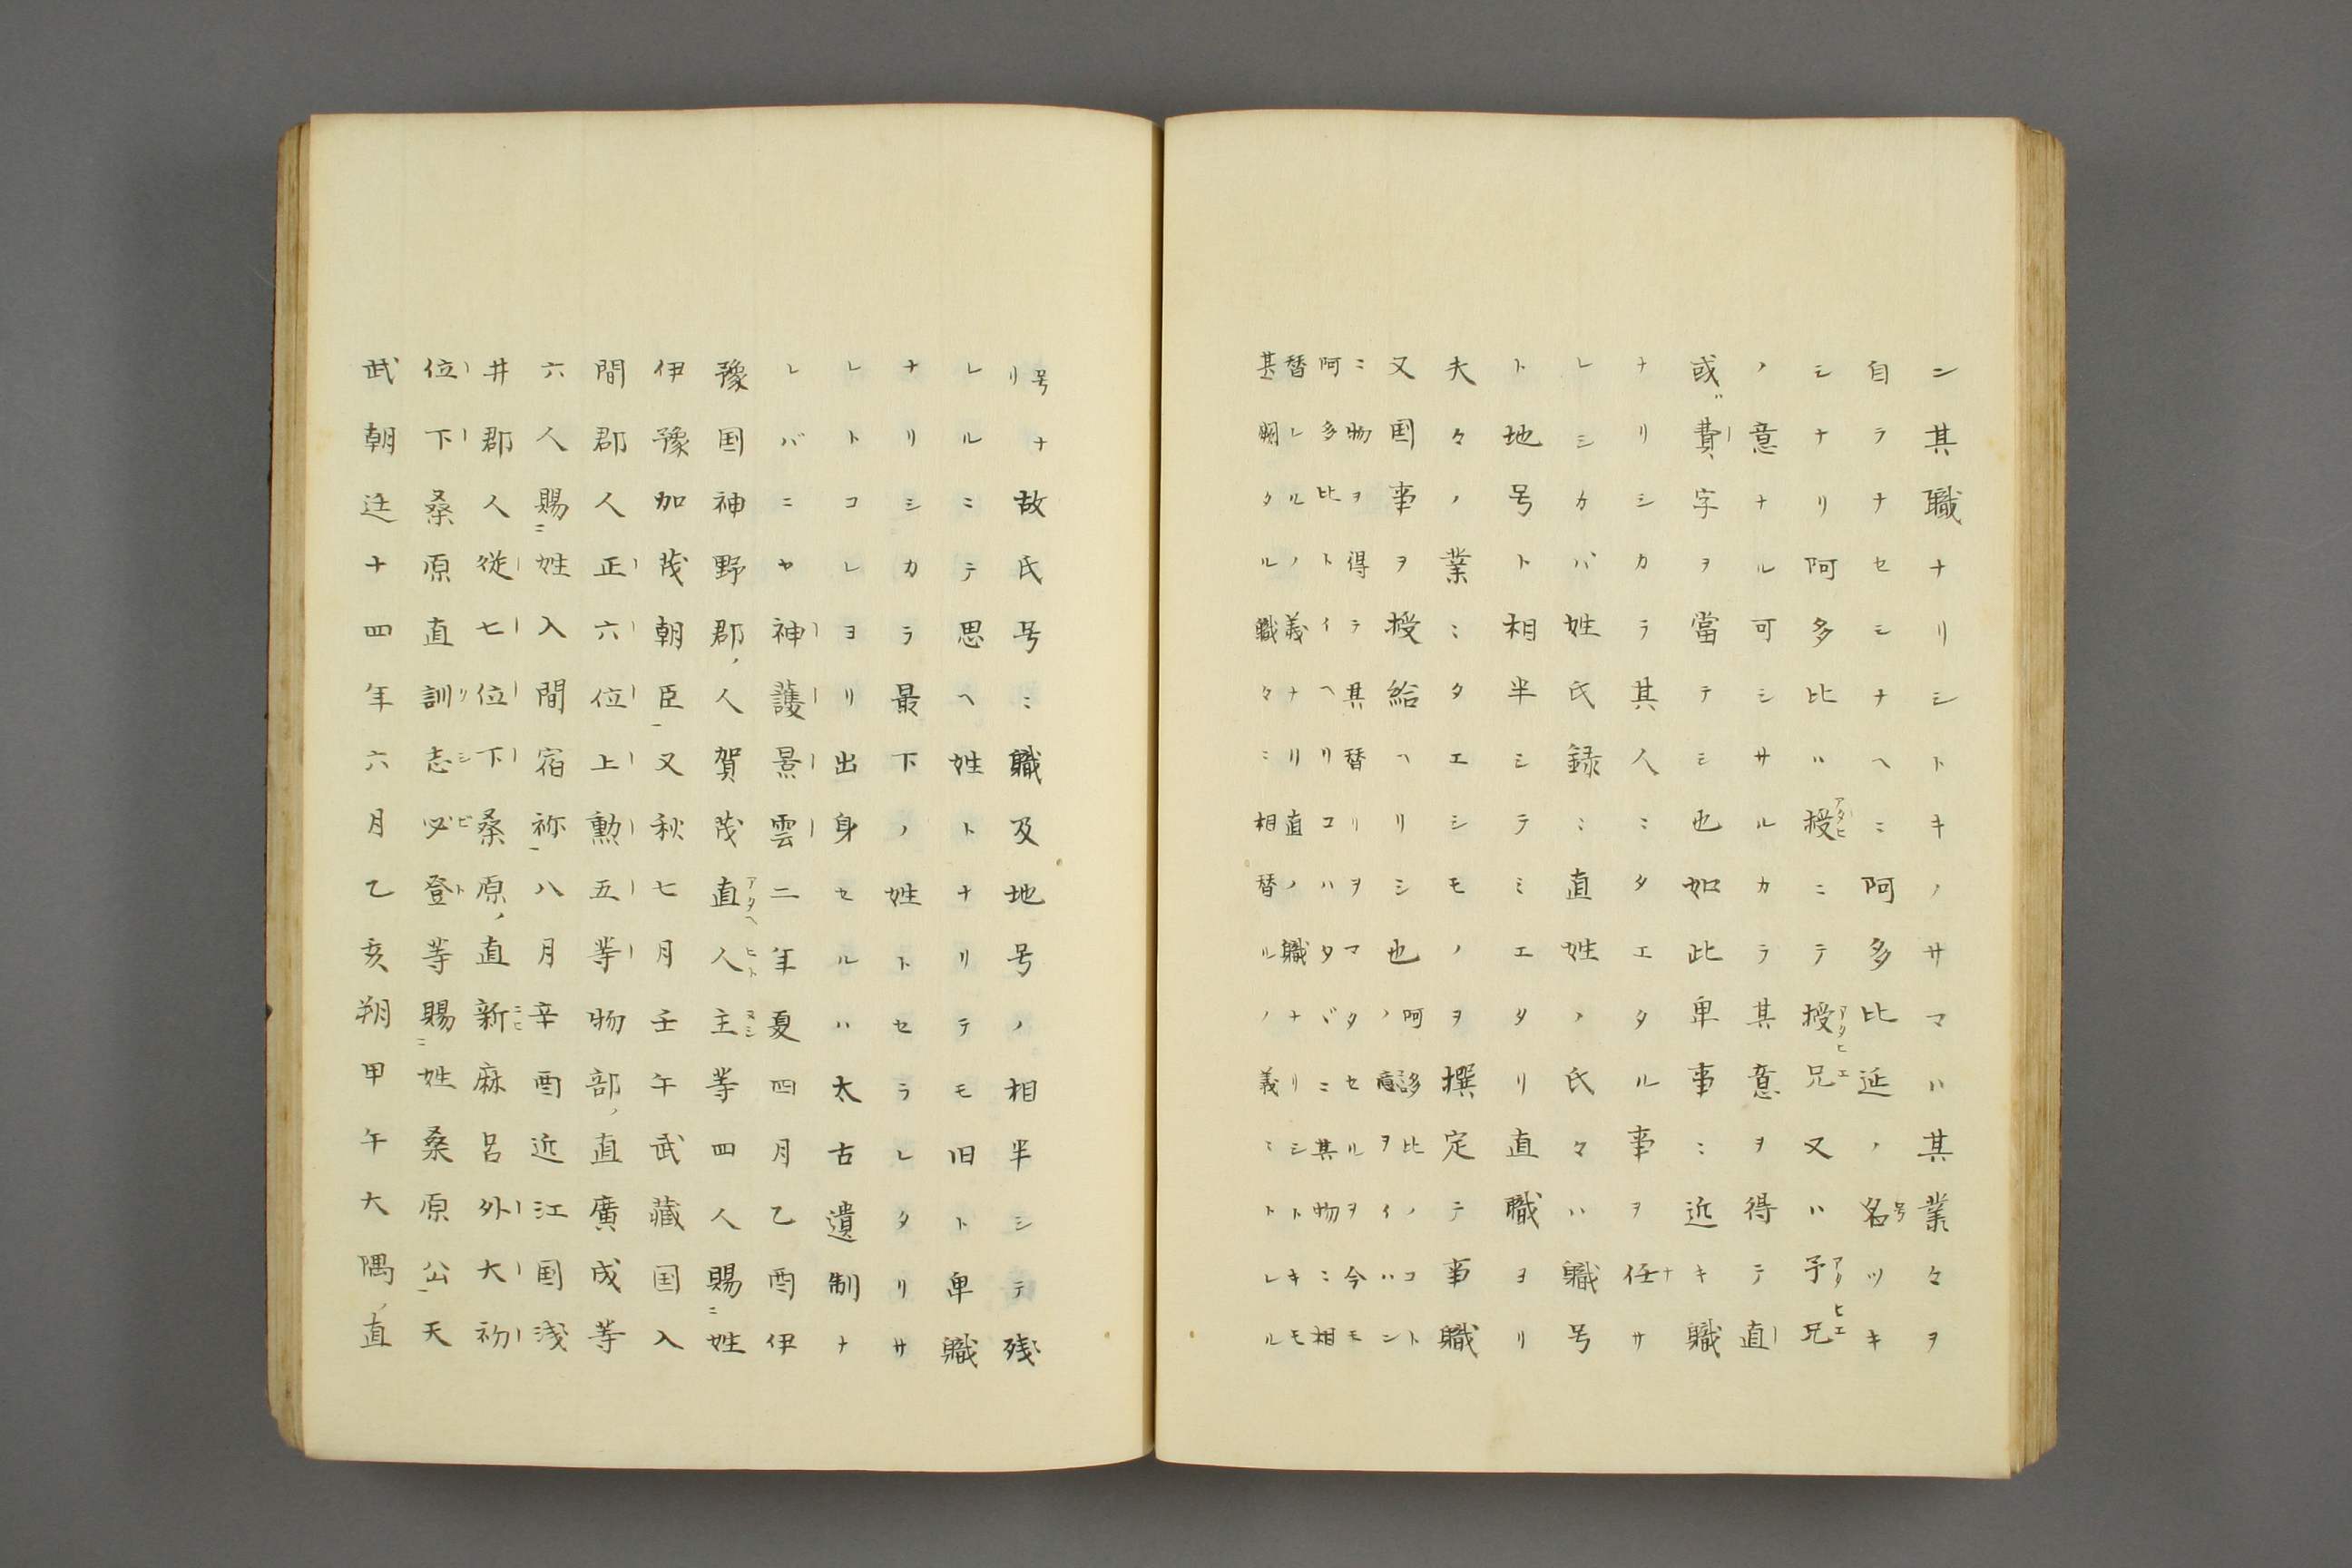 ニ其職ナリシトキノサマハ其業々ヲ
自ラナセシナヘニ阿多比延ノ名号ツキ
シナリ阿多比ハ授アタヒニテ授アタヒ兄エ又ハ予アタヒ兄エ
ノ意ナル可シサルカラ其意ヲ得テ直
或ハ費字ヲ當テシ也如此卑事ニ近キ職
ナリシカラ其人ニタエタル事ヲ任ナサ
レシカバ姓氏録ニ直姓ノ氏々ハ職号
ト地号ト相半シテミエタリ直職ヨリ
夫々ノ業ニタエシモノヲ撰定テ事職
又国事ヲ授給ヘリシ也阿多比ノコト
ノ意ヲイハン
ニ物ヲ得テ其替リヲマタセルヲ今モ
阿多比トイヘリコハタヾニ其物ニ相
替レルノ義ナリ直ノ職ナリシトキモ
甚明タルル職々ニ相替ルノ義ニトレル
号ナリ故氏号ニ職及地号ノ相半シテ残
レルニテ思ヘ姓トナリテモ旧ト卑職
ナリシカラ最下ノ姓トセラレタリサ
レトコレヨリ出身セルハ太古遺制ナ
レバニヤ神護景雲二年夏四月乙酉伊
豫国神野郡ノ人賀茂直アタヘ人ヒト主ヌシ等四人賜ニ姓
伊豫加茂朝臣一又秋七月壬午武藏国入
間郡人正六位上勲五等物部ノ直廣成等
六人賜ニ姓入間宿祢一八月辛酉近江国浅
井郡人従七位下桑原ノ直新ニヒ麻呂外大初
位下桑原直訓リ志シ必ビ登ト等賜ニ姓桑原公一天
武朝廷十四年六月乙亥朔甲午大隅ノ直